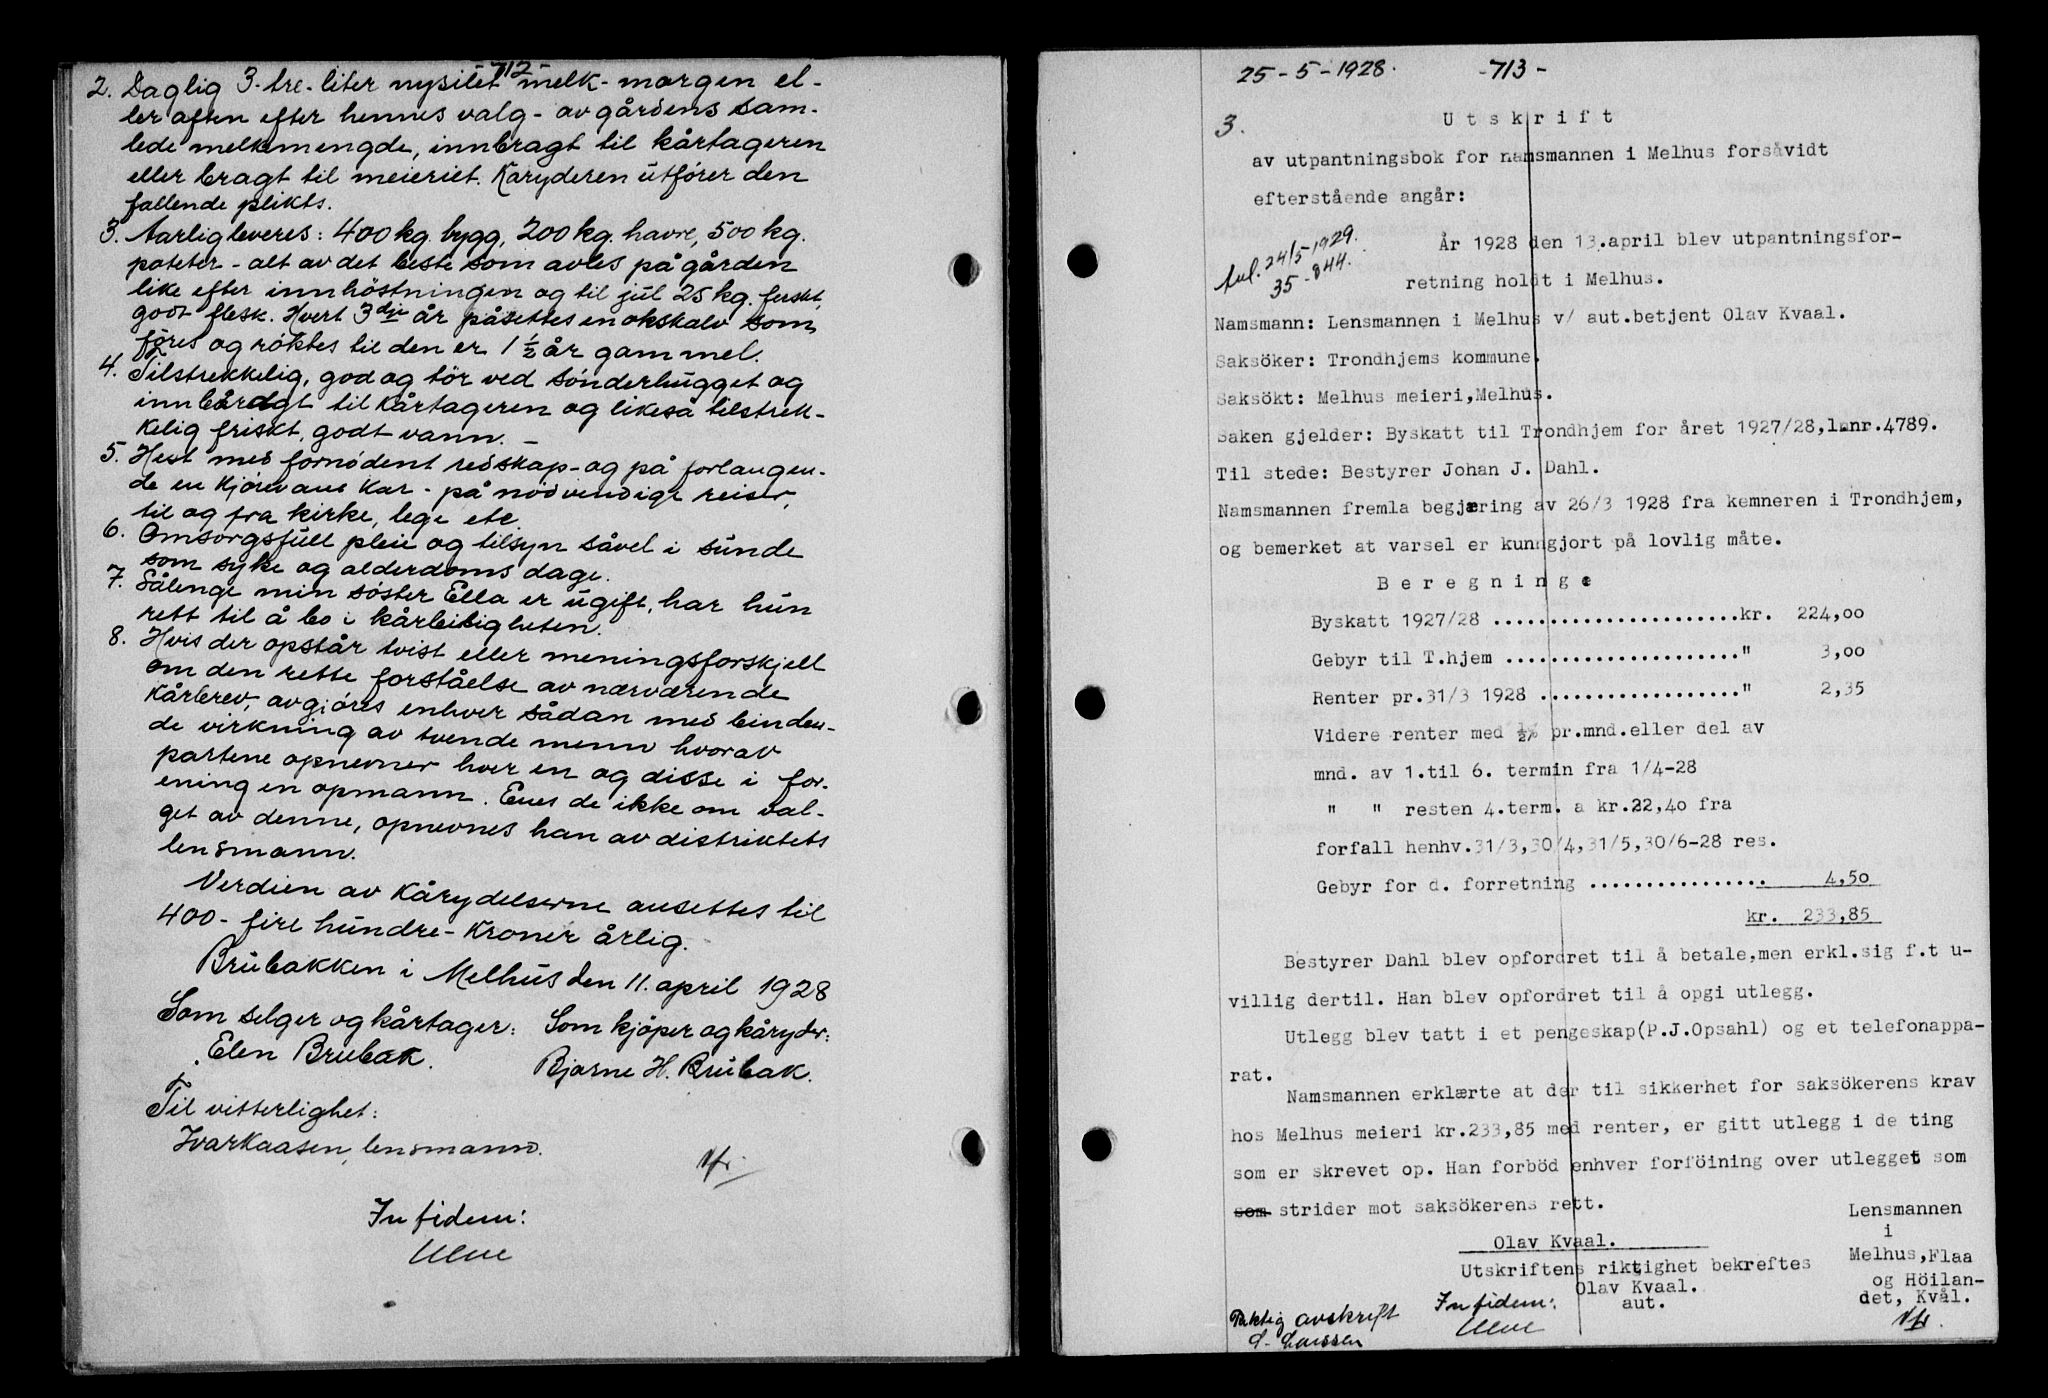 -712-
2. Daglig 3-tre-liter nysilet melk-morgen el-
ler aften efter hennes valg - av gårdens sam-
lede melkemengde, innbragt til kårtageren
eller bragt til meieriet. Kåryderen utfører den
fallende plikts.
3. Aarlig leveres: 400 kg. bygg, 200 kg. havre, 500 kg.
poteter - alt av det beste som avles på gården
like efter innhöstningen og til jul 25 kg. ferskt,
godt flesk. Hvert 3dje år påsettes en okskalv som
föres og röktes til den er 1 1/2 år gammel.
4. Tilstrekkelig, god og tör ved sönderhugget og
innbragt til kårtageren og likeså tilstrek-
kelig friskt, godt vann. -
5. Hest med fornödent redskap - og på forlangen-
de en kjörevane kar - på nödvendige reiser,
til og fra kirke, lege etc.
6. Omsorgsfull pleie og tilsyn såvel i sunde
som syke og alderdoms dage.
7. Sålenge min söster Ella er ugift, har hun
rett til å bo i kårleiligheten.
8. Hvis der opstår tvist eller meningsforskjell
om den rette forståelse av nærværende
kårbrev, avgjöres enhver sådan med binden-
de virkning av tvende menn hvorav
partene opnevner hver en og disse i for-
ening en opmann. Enes de ikke om val-
get av denne, opnevnes han av distriktets
lensmann.
Verdien av kårydelserne ansettes til
400 - fire hundre - kroner årlig.
Brubakken i Melhus den 11. april 1928
Som selger og kårtager: Som kjöper og kåryder:
Elen Brubak. Bjarne H. Brubak.
Til vitterlighet:
Ivar Kaasen, lensmann.
In fidem:
25-5-1928. -713-
3. Utskrift
av utpantningsbok for namsmannen i Melhus forsåvidt
efterstående angår:
År 1928 den 13.april blev utpantningsfor-
avl. 24/5-1929.
35-844.
retning holdt i Melhus.
Namsmann: Lensmannen i Melhus v/ aut.betjent Olav Kvaal.
Saksöker: Trondhjems kommune.
Saksökt: Melhus meieri, Melhus.
Saken gjelder: Byskatt til Trondhjem for året 1927/28, lnr.4789.
Til stede: Bestyrer Johan J. Dahl.
Namsmannen fremla begjæring av 26/3 1928 fra kemneren i Trondhjem,
og bemerket at varsel er kunngjort på lovlig måte.
Beregning:
Byskatt 1927/28 ......................kr. 224,00
Gebyr til T.hjem ....................." 3,00
Renter pr.31/3 1928 .................." 2,35
Videre renter med 1/2% pr.mnd.eller del av
mnd. av 1.til 6. termin fra 1/4-28
" " resten 4.term. a kr.22,40 fra
forfall henhv.31/3,30/4,31/5,30/6-28 res.
Gebyr for d. forretning ................ 4,50
kr. 233,85
Bestyrer Dahl blev opfordret til å betale,men erkl.sig f.t u-
villig dertil. Han blev opfordret til å opgi utlegg.
Utlegg blev tatt i et pengeskap(P.J.Opsahl) og et telefonappa-
rat.
Namsmannen erklærte at der til sikkerhet for saksökerens krav
hos Melhus meieri kr.233,85 med renter, er gitt utlegg i de ting
som er skrevet op. Han forböd enhver forföining over utlegget som
som strider mot saksökerens rett.
Olav Kvaal.
Utskriftens riktighet bekreftes
Olav Kvaal.
aut.
Lensmannen
i
Melhus, Flaa
og Höilan-
det, Kvål.
Riktig avskrift
In fidem: